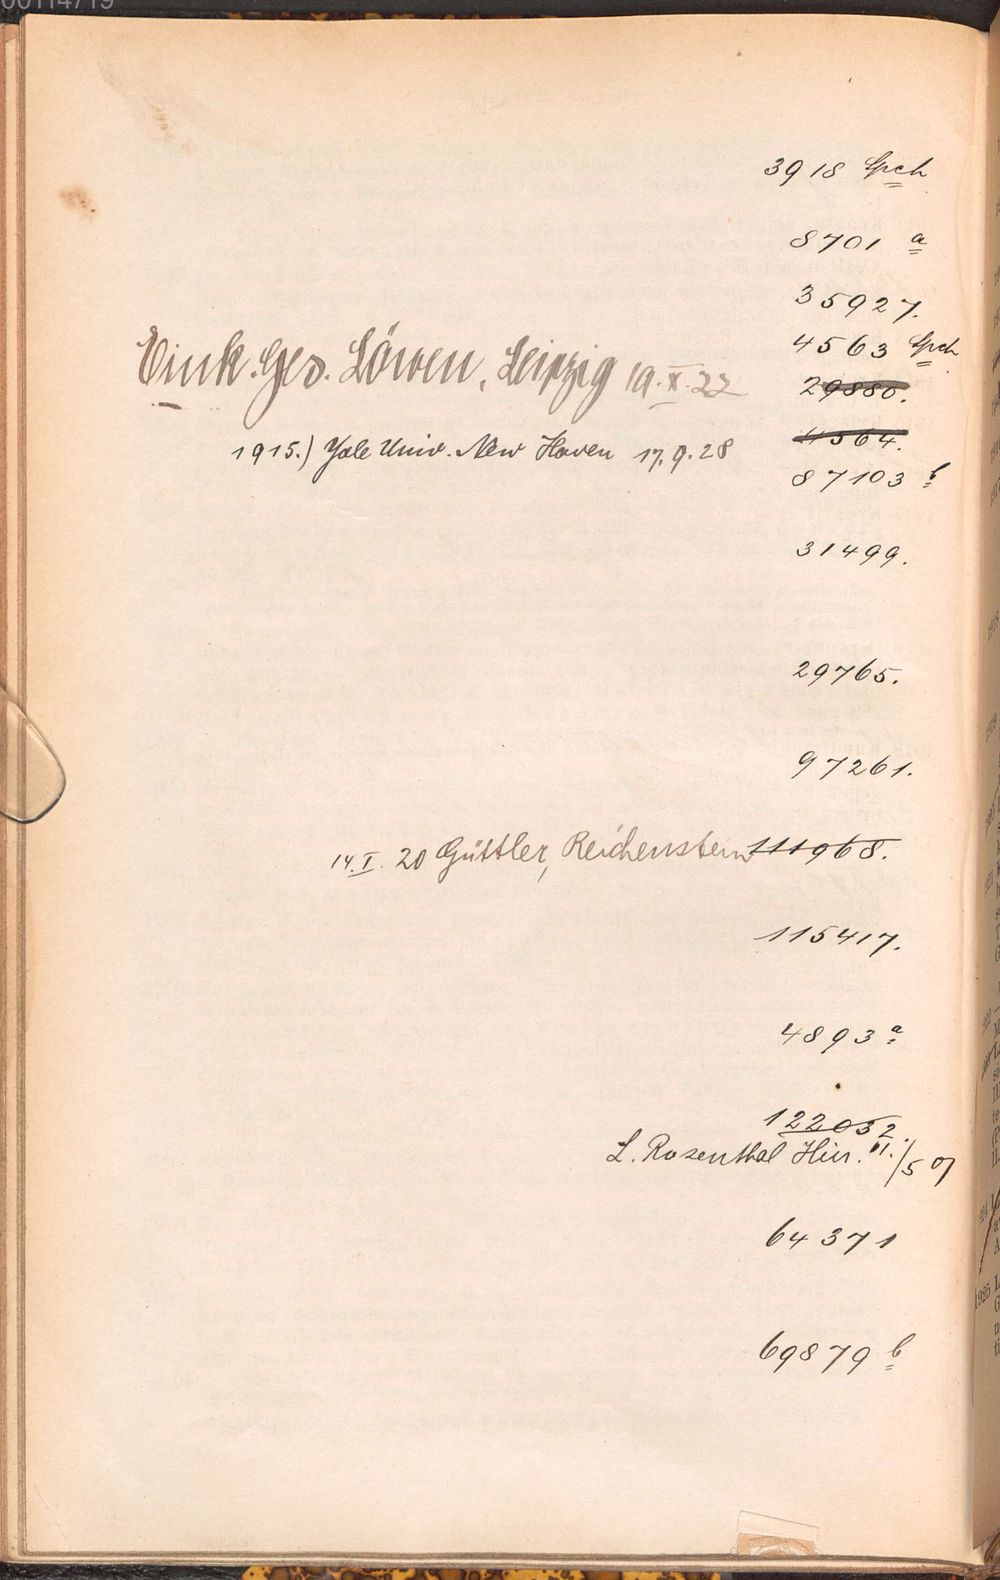 00114719
3918 Spch
8701 a
35927.
4563 Spch
Eink. Ges. Löwen, Leipzig 19.X.22
29880.
4564.
1915.) Yale Univ. New Haven 17.9.28
87103 b
31499.
29765.
97261.
14.I.20 Güttler, Reichenstein 111968.
115417.
4893 a
122032.
L. Rosenthal 61./5 07
64371
69879 b
1925